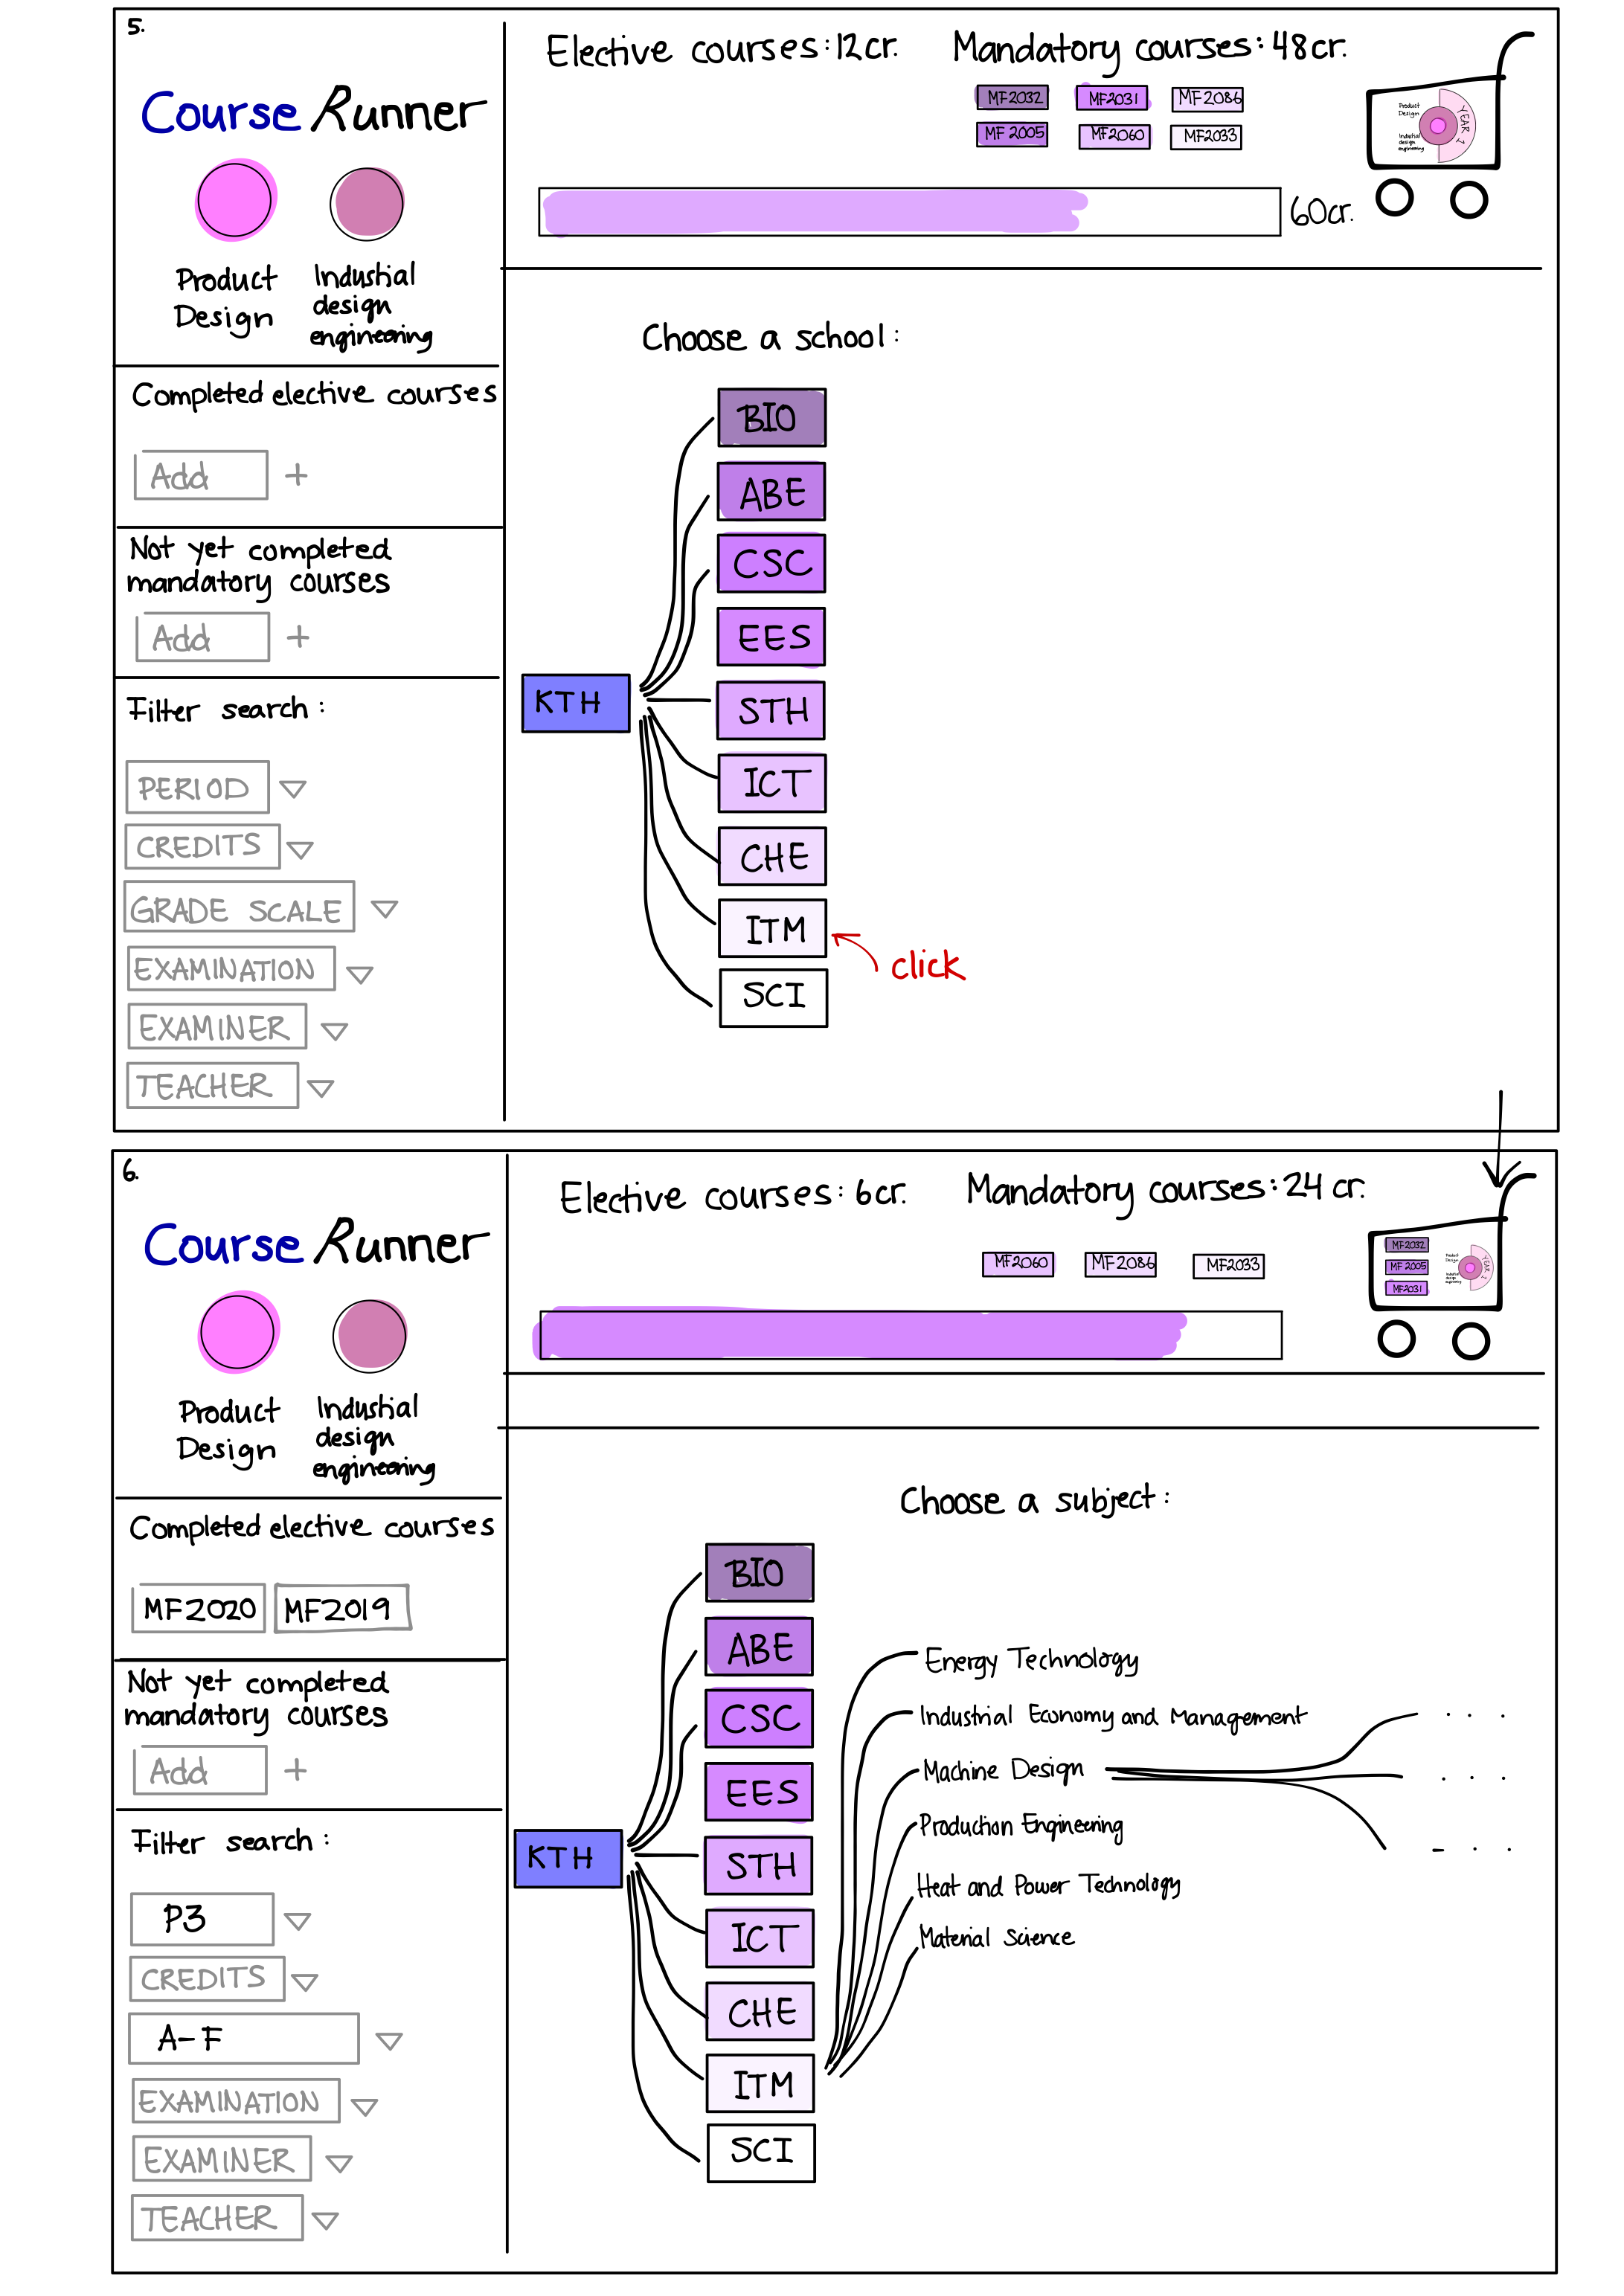 5.
Course Runner
Product
Design
Industrial
design
engineering
Completed elective courses
Add +
Not yet completed
mandatory courses
Add +
Filter search:
PERIOD
CREDITS
GRADE SCALE
EXAMINATION
EXAMINER
TEACHER
Elective courses: 12cr. Mandatory courses: 48cr.
MF2032 MF2031 MF2086
MF2005 MF2060 MF2033
60cr.
Product
Design
Industrial
design
engineering
YEAR 1
Choose a school:
KTH
BIO
ABE
CSC
EES
STH
ICT
CHE
ITM
click
SCI
6.
Course Runner
Product
Design
Industrial
design
engineering
Completed elective courses
MF2020 MF2019
Not yet completed
mandatory courses
Add +
Filter search:
P3
CREDITS
A-F
EXAMINATION
EXAMINER
TEACHER
Elective courses: 6cr. Mandatory courses: 24 cr.
MF2060 MF2086 MF2033
MF2032
MF2005
MF2031
Product
Design
Industrial
design
engineering
YEAR 1
Choose a subject:
KTH
BIO
ABE
CSC
EES
STH
ICT
CHE
ITM
SCI
Energy Technology
Industrial Economy and Management
Machine Design
Production Engineering
Heat and Power Technology
Material Science